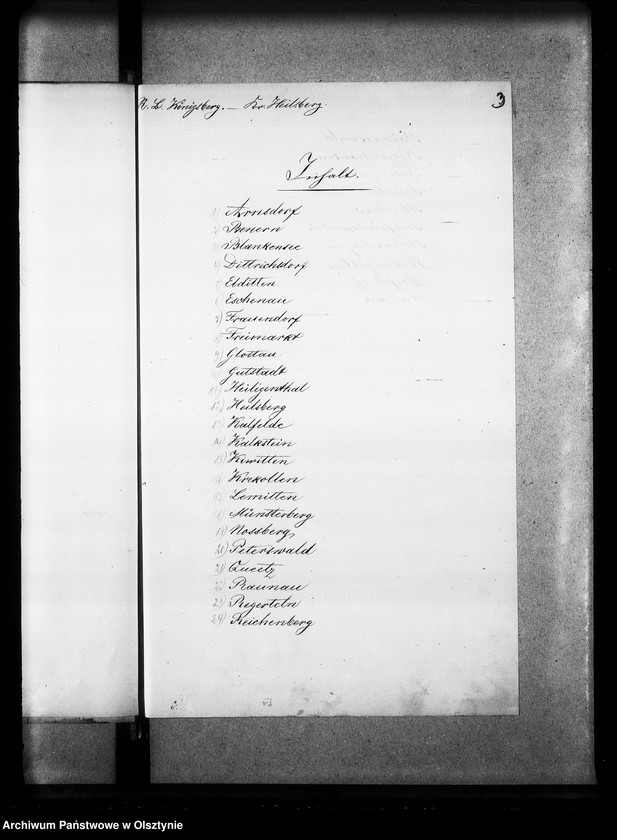 R. B. Königsberg. — Kr. Heilsberg.
3
Inhalt.
1) Arnsdorf
2) Benern
3) Blankensee
4) Dittrichsdorf
5) Elditten
6) Eschenau
7) Frauendorf
8) Freimarkt
9) Glottau
Gutstadt
11) Heiligenthal
12) Heilsberg
13) Kalfelde
14) Kalkstein
15) Kiwitten
16) Krekollen
17) Lemitten
18) Münsterberg
19) Nossberg
20) Peterswald
21) Queetz
22) Raunau
23) Regerteln
24) Reichenberg
Archiwum Państwowe w Olsztynie